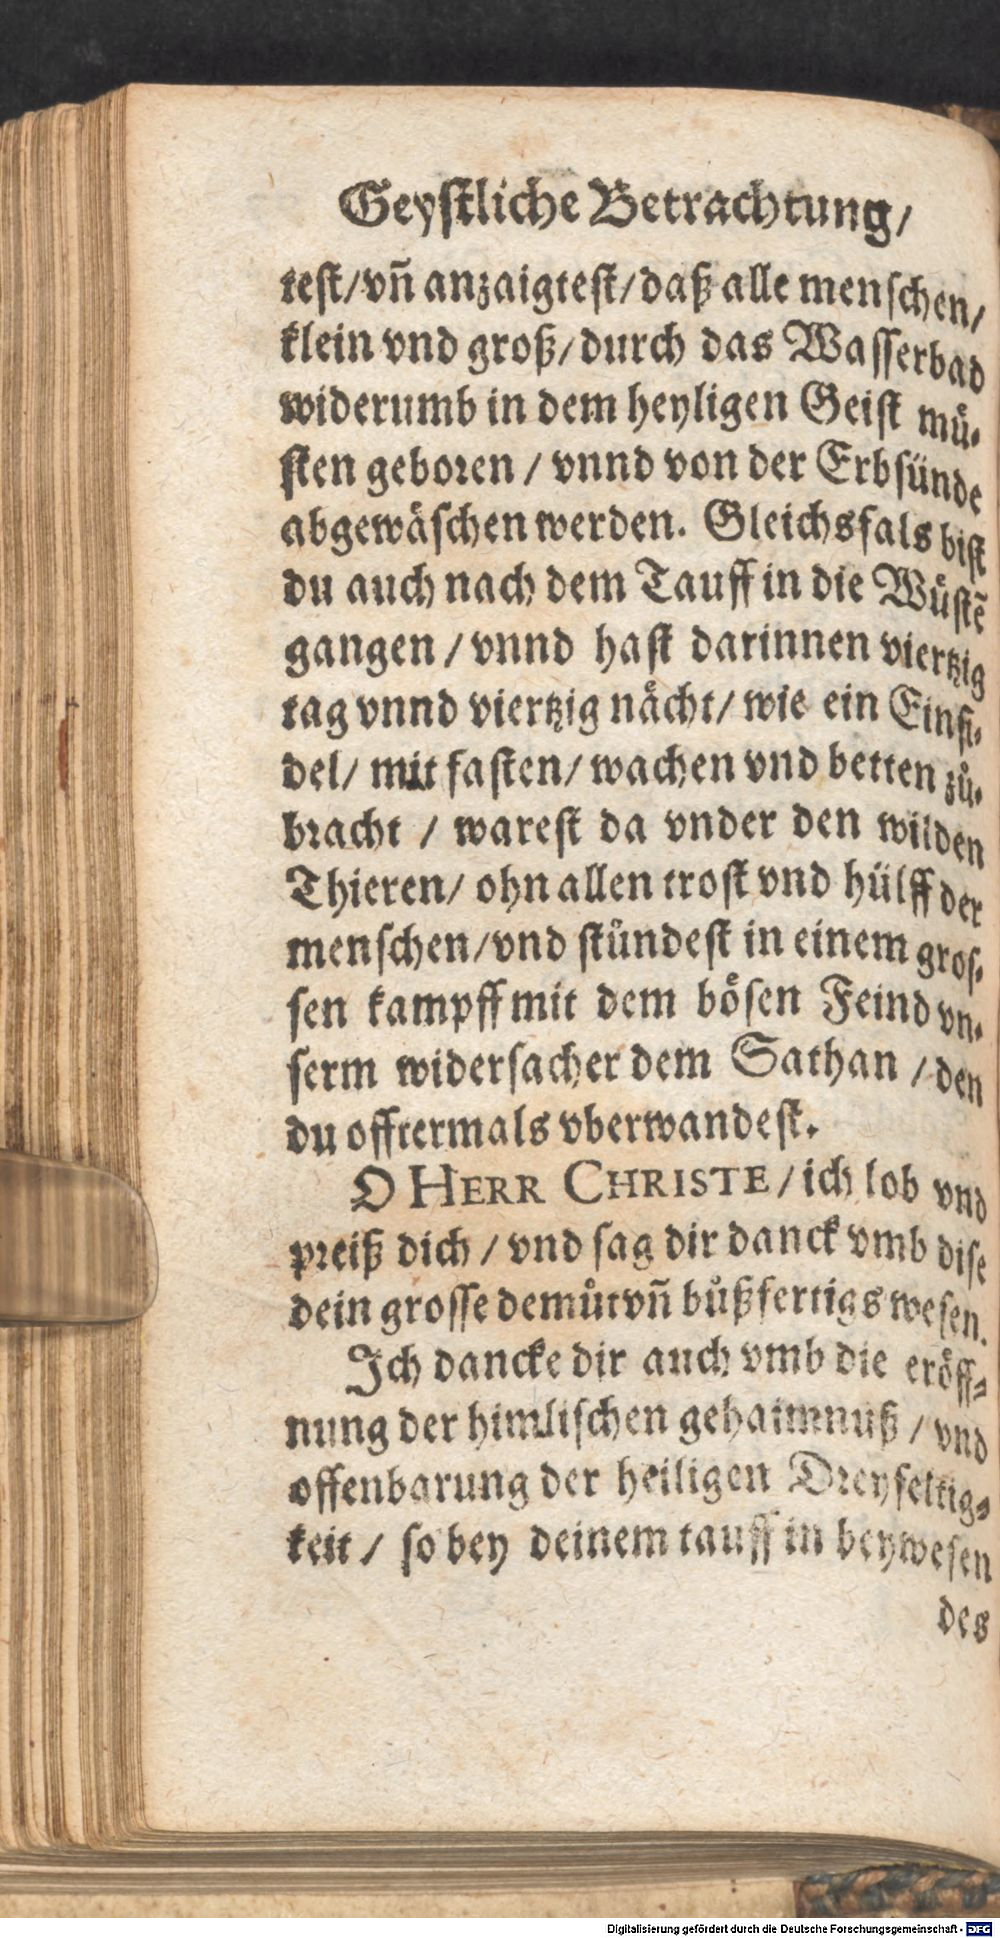 Geyſtliche Betrachtung/
teſt/vñ anzaigteſt/daß alle menſchen/
klein vnd groß/durch das Waſſerbad
widerumb in dem heyligen Geiſt muͤ-
ſten geboren / vnnd von der Erbſünde
abgewäſchen werden. Gleichsfals biſt
du auch nach dem Tauff in die Wuͤſtẽ
gangen / vnnd haſt darinnen viertzig
tag vnnd viertzig naͤcht/ wie ein Einſi-
del/ mit faſten/ wachen vnd betten zuͦ-
bracht / wareſt da vnder den wilden
Thieren/ ohn allen troſt vnd hülff der
menſchen/vnd ſtuͤndeſt in einem groſ-
ſen kampff mit dem boͤſen Feind vn-
ſerm widerſacher dem Sathan / den
du offtermals vberwandeſt.
O HERR CHRISTE/ ich lob vnd
preiß dich / vnd ſag dir danck vmb diſe
dein groſſe demuͦt vñ buͦßfertigs weſen.
Ich dancke dir auch vmb die eroͤff-
nung der himliſchen gehaimnuß / vnd
offenbarung der heiligen Dreyfeltig-
keit / ſo bey deinem tauff in beyweſen
des
Digitalisierung gefördert durch die Deutsche Forschungsgemeinschaft - DFG